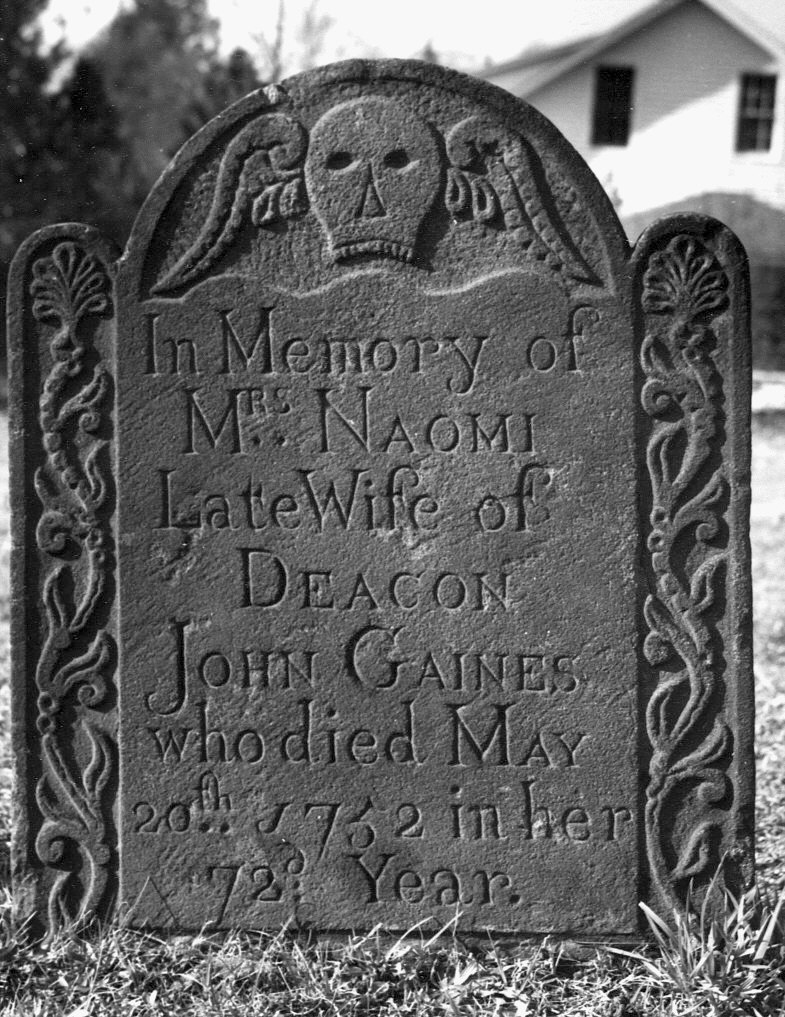 In Memory of
Mrs. Naomi
Late Wife of
Deacon
John Gaines
who died May
20th.. 1752 in her
72d: Year.